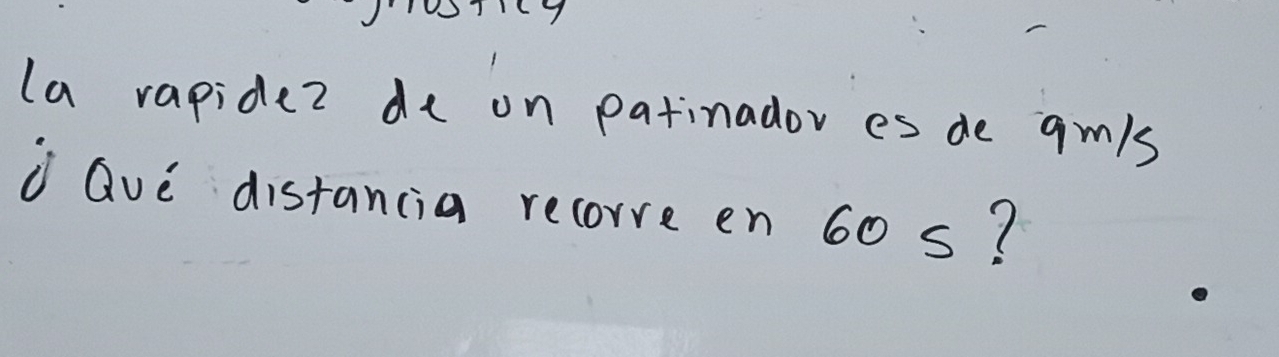 la rapidez de un patinador es de 9m/s
¿Qué distancia recorre en 60 s?